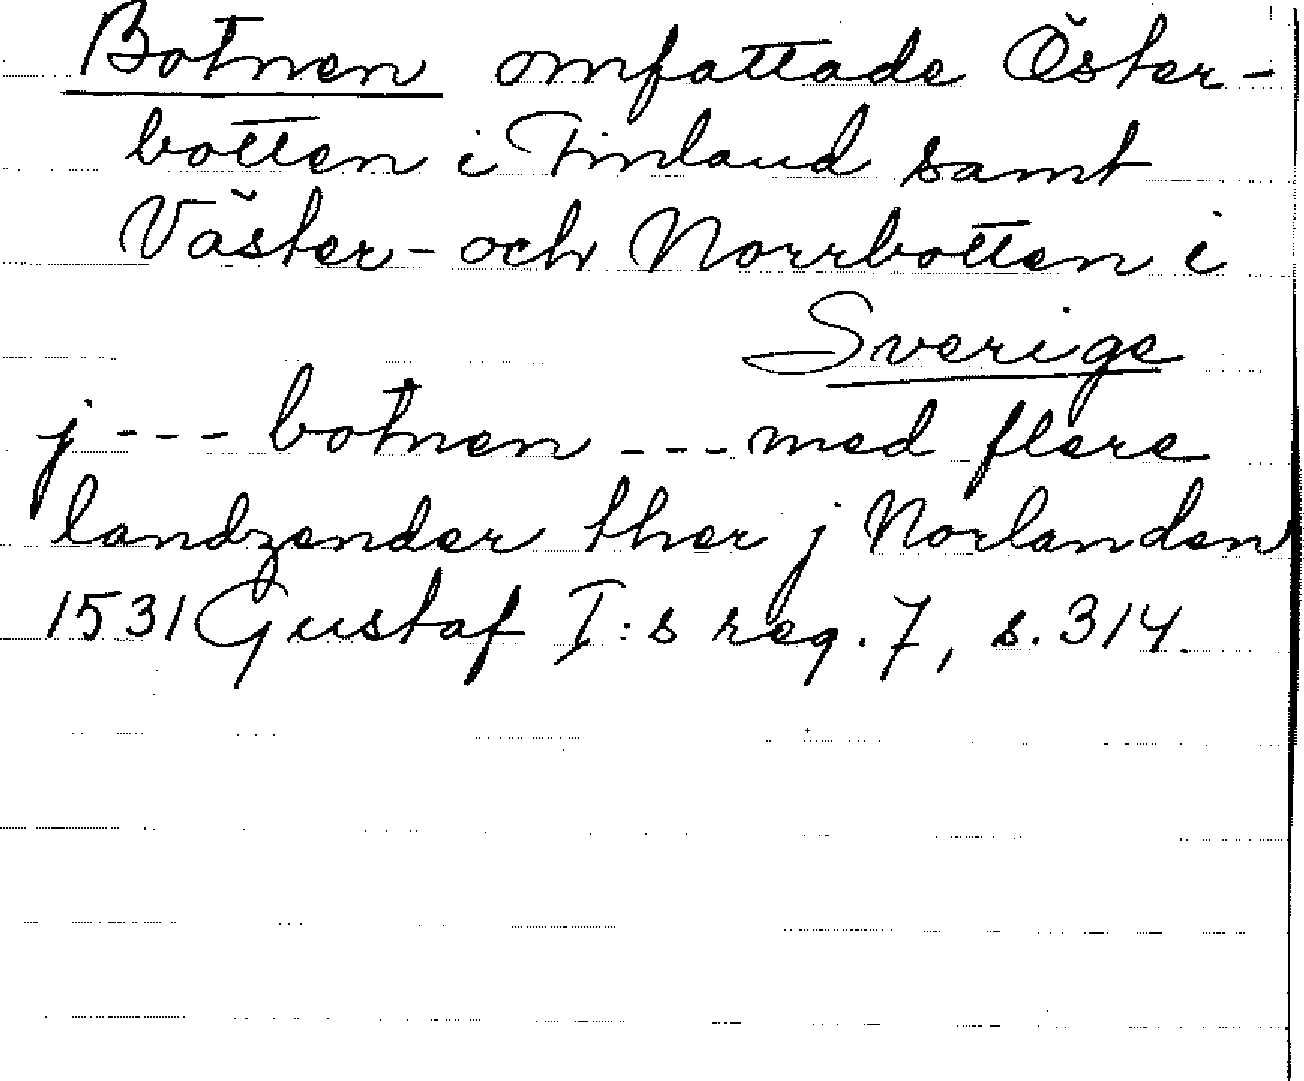 Botnen omfattade Öster-
botten i Finland samt
Väster- och Norrbotten i
Sverige
j --- botnen --- med flere
landzender ther j Norlanden
1531 Gustaf I:s reg. 7, s. 314.